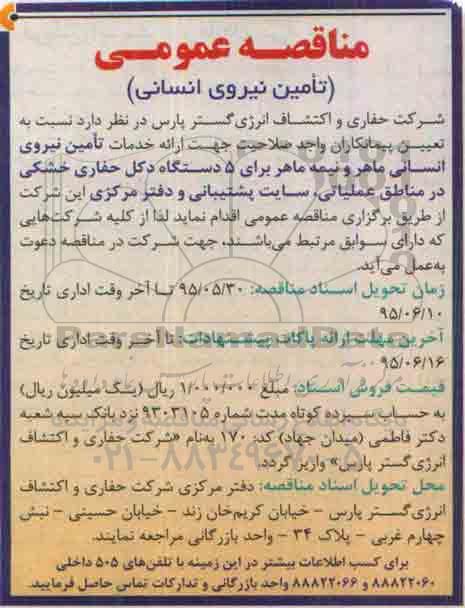 مناقصه عمومی
(تأمین نیروی انسانی)
شرکت حفاری و اکتشاف انرژی‌گستر پارس در نظر دارد نسبت به
تعیین پیمانکاران واجد صلاحیت جهت ارائه خدمات تأمین نیروی
انسانی ماهر و نیمه ماهر برای ۵ دستگاه دکل حفاری خشکی
در مناطق عملیاتی، سایت پشتیبانی و دفتر مرکزی این شرکت
از طریق برگزاری مناقصه عمومی اقدام نماید لذا از کلیه شرکت‌هایی
که دارای سوابق مرتبط می‌باشند، جهت شرکت در مناقصه دعوت
به‌عمل می‌آید.
زمان تحویل اسناد مناقصه: ۹۵/۰۵/۳۰ تا آخر وقت اداری تاریخ
۹۵/۰۶/۱۰
آخرین مهلت ارائه پاکات پیشنهادات: تا آخر وقت اداری تاریخ
۹۵/۰۶/۱۶
قیمت فروش اسناد: مبلغ ۱/۰۰۰/۰۰۰ ریال (یک میلیون ریال)
به حساب سپرده کوتاه مدت شماره ۹۳۰۳۱۰۵ نزد بانک سپه شعبه
دکتر فاطمی (میدان جهاد) کد: ۱۷۰ به‌نام «شرکت حفاری و اکتشاف
انرژی‌گستر پارس» واریز گردد.
محل تحویل اسناد مناقصه: دفتر مرکزی شرکت حفاری و اکتشاف
انرژی‌گستر پارس - خیابان کریم‌خان زند - خیابان حسینی - نبش
چهارم غربی - پلاک ۳۴ - واحد بازرگانی مراجعه نمایند.
برای کسب اطلاعات بیشتر در این زمینه با تلفن‌های ۵۰۵ داخلی
۸۸۸۲۲۰۶۰ و ۸۸۸۲۲۰۶۶ واحد بازرگانی و تدارکات تماس حاصل فرمایید.
ParsNamadData
۰۲۱-۸۸۳۴۹۶۷۰-۵